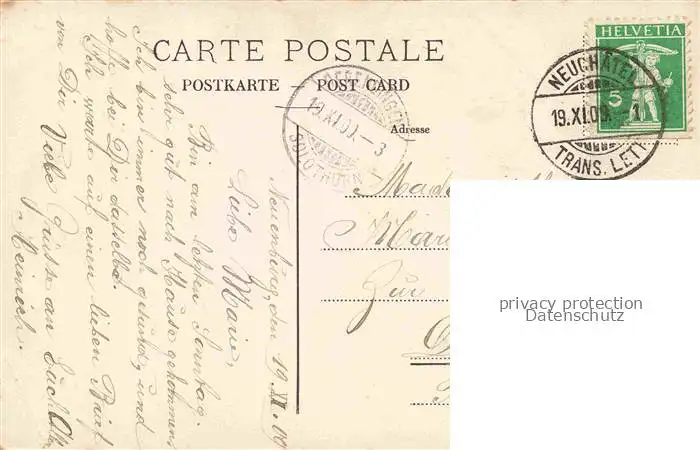 CARTE POSTALE
POSTKARTE — POST CARD
Adresse
HELVETIA
5
NEUCHÂTEL
19.XI.09.–1
TRANS. LETT.
19.XI.09.–3
SOLOTHURN
Neuenburg, den 19. XI. 09
Liebe Marie,
Bin am letzten Sonntag
sehr gut nach Hause gekommen,
Ich bin immer noch gesund, und
hoffe bei Dir dasselbe.
Ich warte auf einen lieben Brief
von Dir Viele Grüsse an Euch Alle
Heinrich.
Made
Mari
Zur
privacy protection
Datenschutz